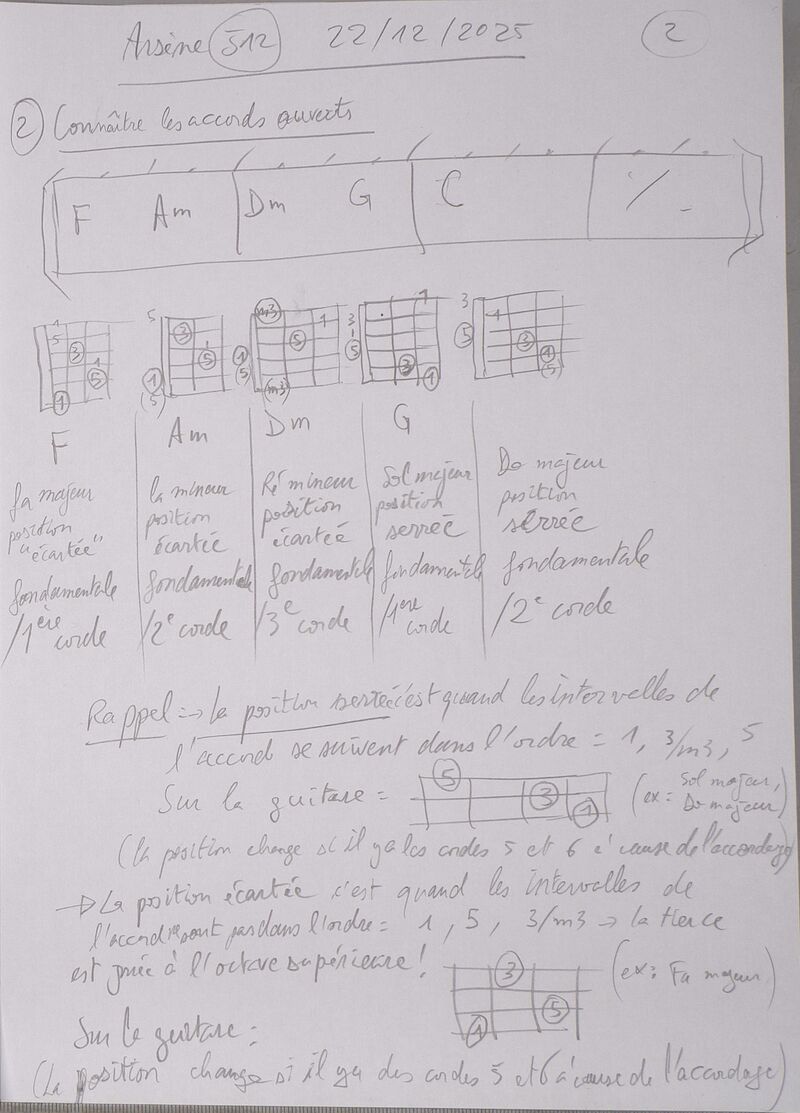 Arsène 512 22/12/2025 2
2 Connaître les accords ouverts
F Am Dm G C ٪
1 5 3 1 5 1
5 3 5 1 5
m3 1 5 1 5 m3
1 3 5 3 1
3 1 5 3 1 5
F Am Dm G
Fa majeur position "écartée" fondamentale /1ère corde
la mineur position écartée fondamentale /2e corde
Ré mineur position écartée fondamentale /3e corde
Sol majeur position serrée fondamentale /1ère corde
Do majeur position serrée fondamentale /2e corde
Rappel => la position serrée c'est quand les intervalles de
l'accord se suivent dans l'ordre = 1, 3/m3, 5
Sur la guitare = 5 3 1 (ex: Sol majeur, Do majeur)
(la position change si il ya les cordes 5 et 6 à cause de l'accordage)
→ La position écartée c'est quand les intervalles de
l'accord sont pas dans l'ordre = 1, 5, 3/m3 → la tierce
est jouée à l'octave supérieure !
3 5 1 (ex: Fa majeur)
Sur la guitare :
(La position change si il ya des cordes 5 et 6 à cause de l'accordage)